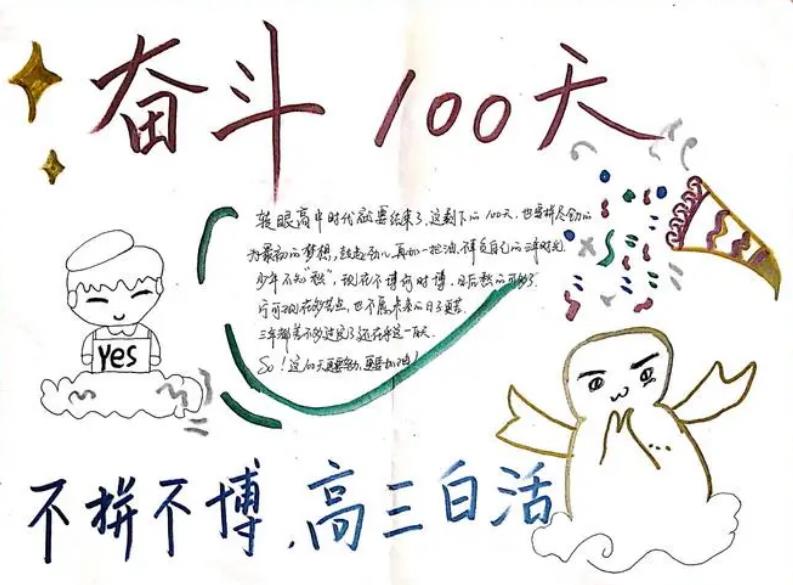 奋斗 100天
转眼高中时代就要结束了,这剩下的100天,也要拼尽全力的
为最初的梦想,鼓起劲儿,再加一把油,不辜负自己的三年时光.
少年不知“愁”,现在不博何时博,日后愁的可多了
宁可现在多苦点,也不愿未来的日子更苦.
三年都差不多过完了还在乎这一百天.
So!这100天更要努力,更要加油!
yes
不拼不博,高三白活